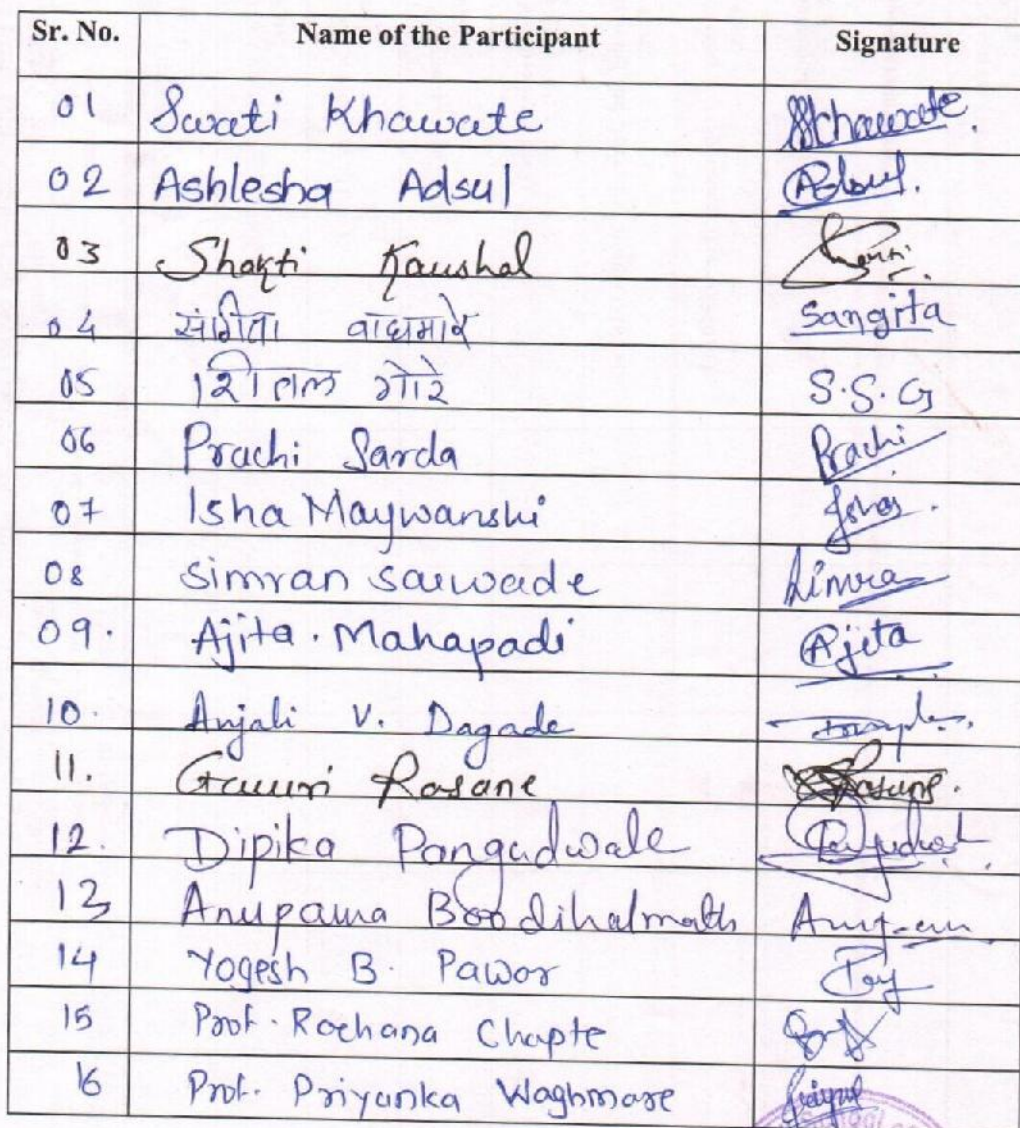 Sr. No. Name of the Participant Signature
01 Swati Khawate SKhawate
02 Ashlesha Adsul Adsul.
03 Shakti Kaushal
04 संगीता वाघमारे Sangita
05 शितल गोरे S.S.G
06 Prachi Sarda Prachi
07 Isha Maywanshi Isha.
08 Simran sarwade Simran
09. Ajita. Mahapadi Ajita
10. Anjali V. Dagade
11. Gauri Rasane Rasane.
12. Dipika Pangudwale
13 Anupama Boodihalmath Anupam
14 Yogesh B. Pawar
15 Prof. Rachana Chapte
16 Prof. Priyanka Waghmare